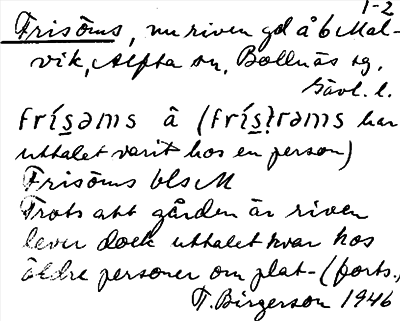 1-2
Frisöms, nu riven gd å 6 Mal-
vik, Alfta sn, Bollnäs tg.
Gävl. l.
frísəms â (frís̩trəms har
uttalet varit hos en person)
Frisöms bls M
Trots att gården är riven
lever dock uttalet kvar hos
äldre personer om plat- (forts.)
T. Birgerson 1946